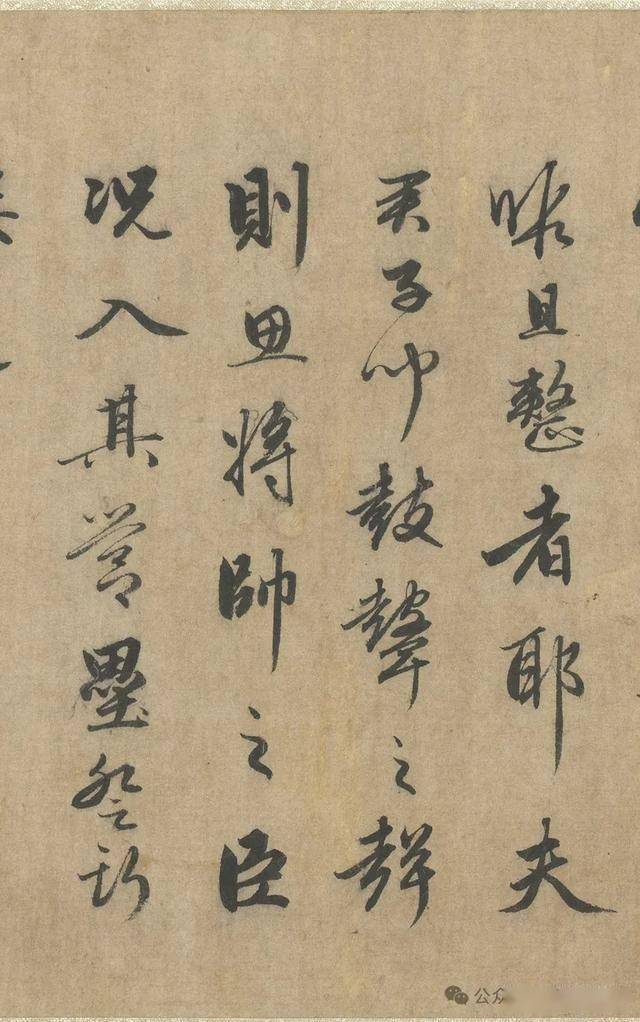 暇且整者耶夫
君子聽鼓鼙之聲
則思將帥之臣
况入其營壘
公众